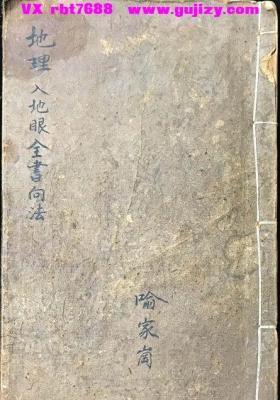 VX rbt7688 www.gujizy.com
地理入地眼全書向法
喻家崗